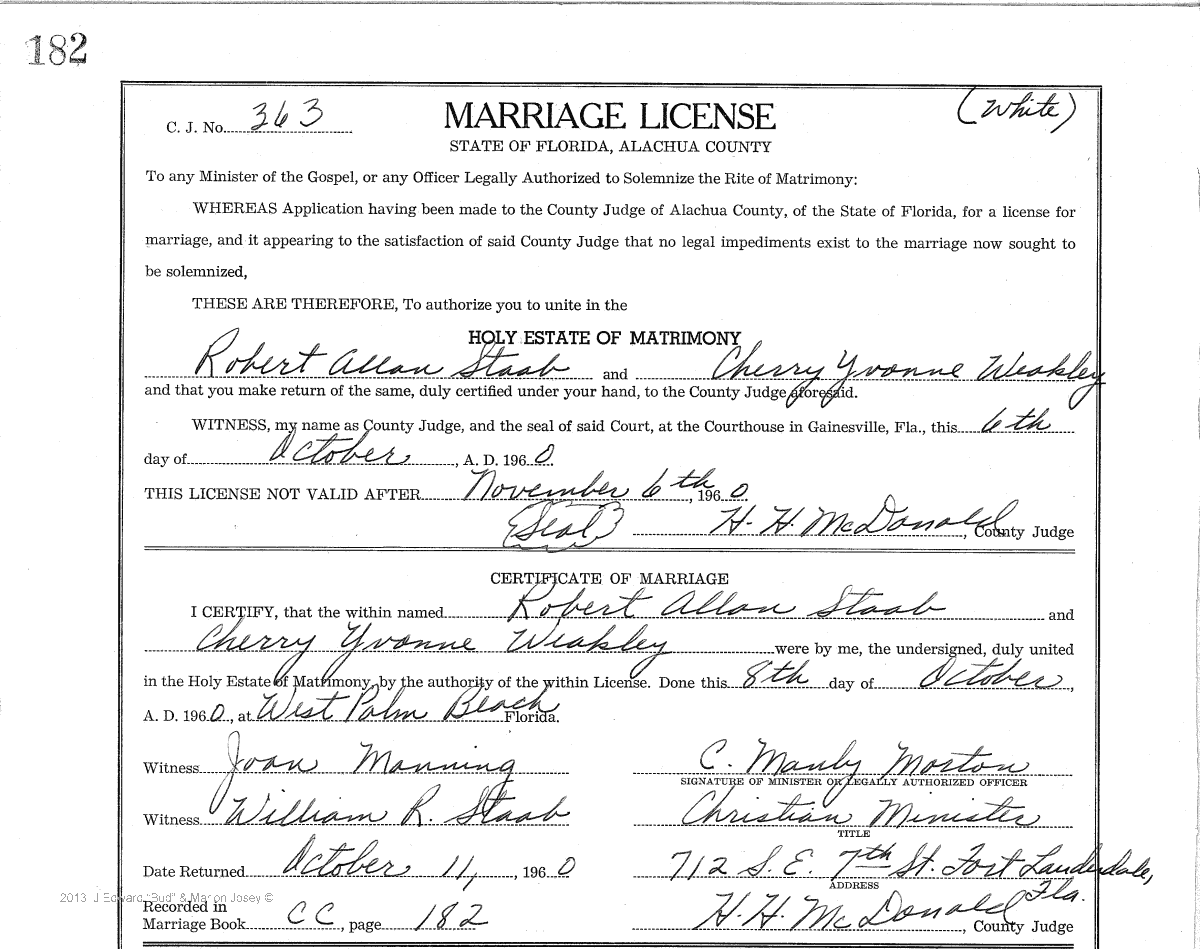 182
C. J. No. 363 MARRIAGE LICENSE (White)
STATE OF FLORIDA, ALACHUA COUNTY
To any Minister of the Gospel, or any Officer Legally Authorized to Solemnize the Rite of Matrimony:
WHEREAS Application having been made to the County Judge of Alachua County, of the State of Florida, for a license for
marriage, and it appearing to the satisfaction of said County Judge that no legal impediments exist to the marriage now sought to
be solemnized,
THESE ARE THEREFORE, To authorize you to unite in the
HOLY ESTATE OF MATRIMONY
Robert Allan Staab and Cherry Yvonne Weakley
and that you make return of the same, duly certified under your hand, to the County Judge aforesaid.
WITNESS, my name as County Judge, and the seal of said Court, at the Courthouse in Gainesville, Fla., this 6th
day of October, A. D. 1960.
THIS LICENSE NOT VALID AFTER November 6th, 1960
(Seal) H. H. McDonald, County Judge
CERTIFICATE OF MARRIAGE
I CERTIFY, that the within named Robert Allan Staab and
Cherry Yvonne Weakley were by me, the undersigned, duly united
in the Holy Estate of Matrimony, by the authority of the within License. Done this 8th day of October,
A. D. 1960, at West Palm Beach Florida.
Witness Joan Manning C. Manly Morton
SIGNATURE OF MINISTER OR LEGALLY AUTHORIZED OFFICER
Witness William R. Staab Christian Minister
TITLE
Date Returned October 11, 1960 712 S. E. 7th St. Fort Lauderdale,
ADDRESS Fla.
2013 J Edward "Bud" & Marion Josey ©
Recorded in
Marriage Book CC, page 182 H. H. McDonald, County Judge